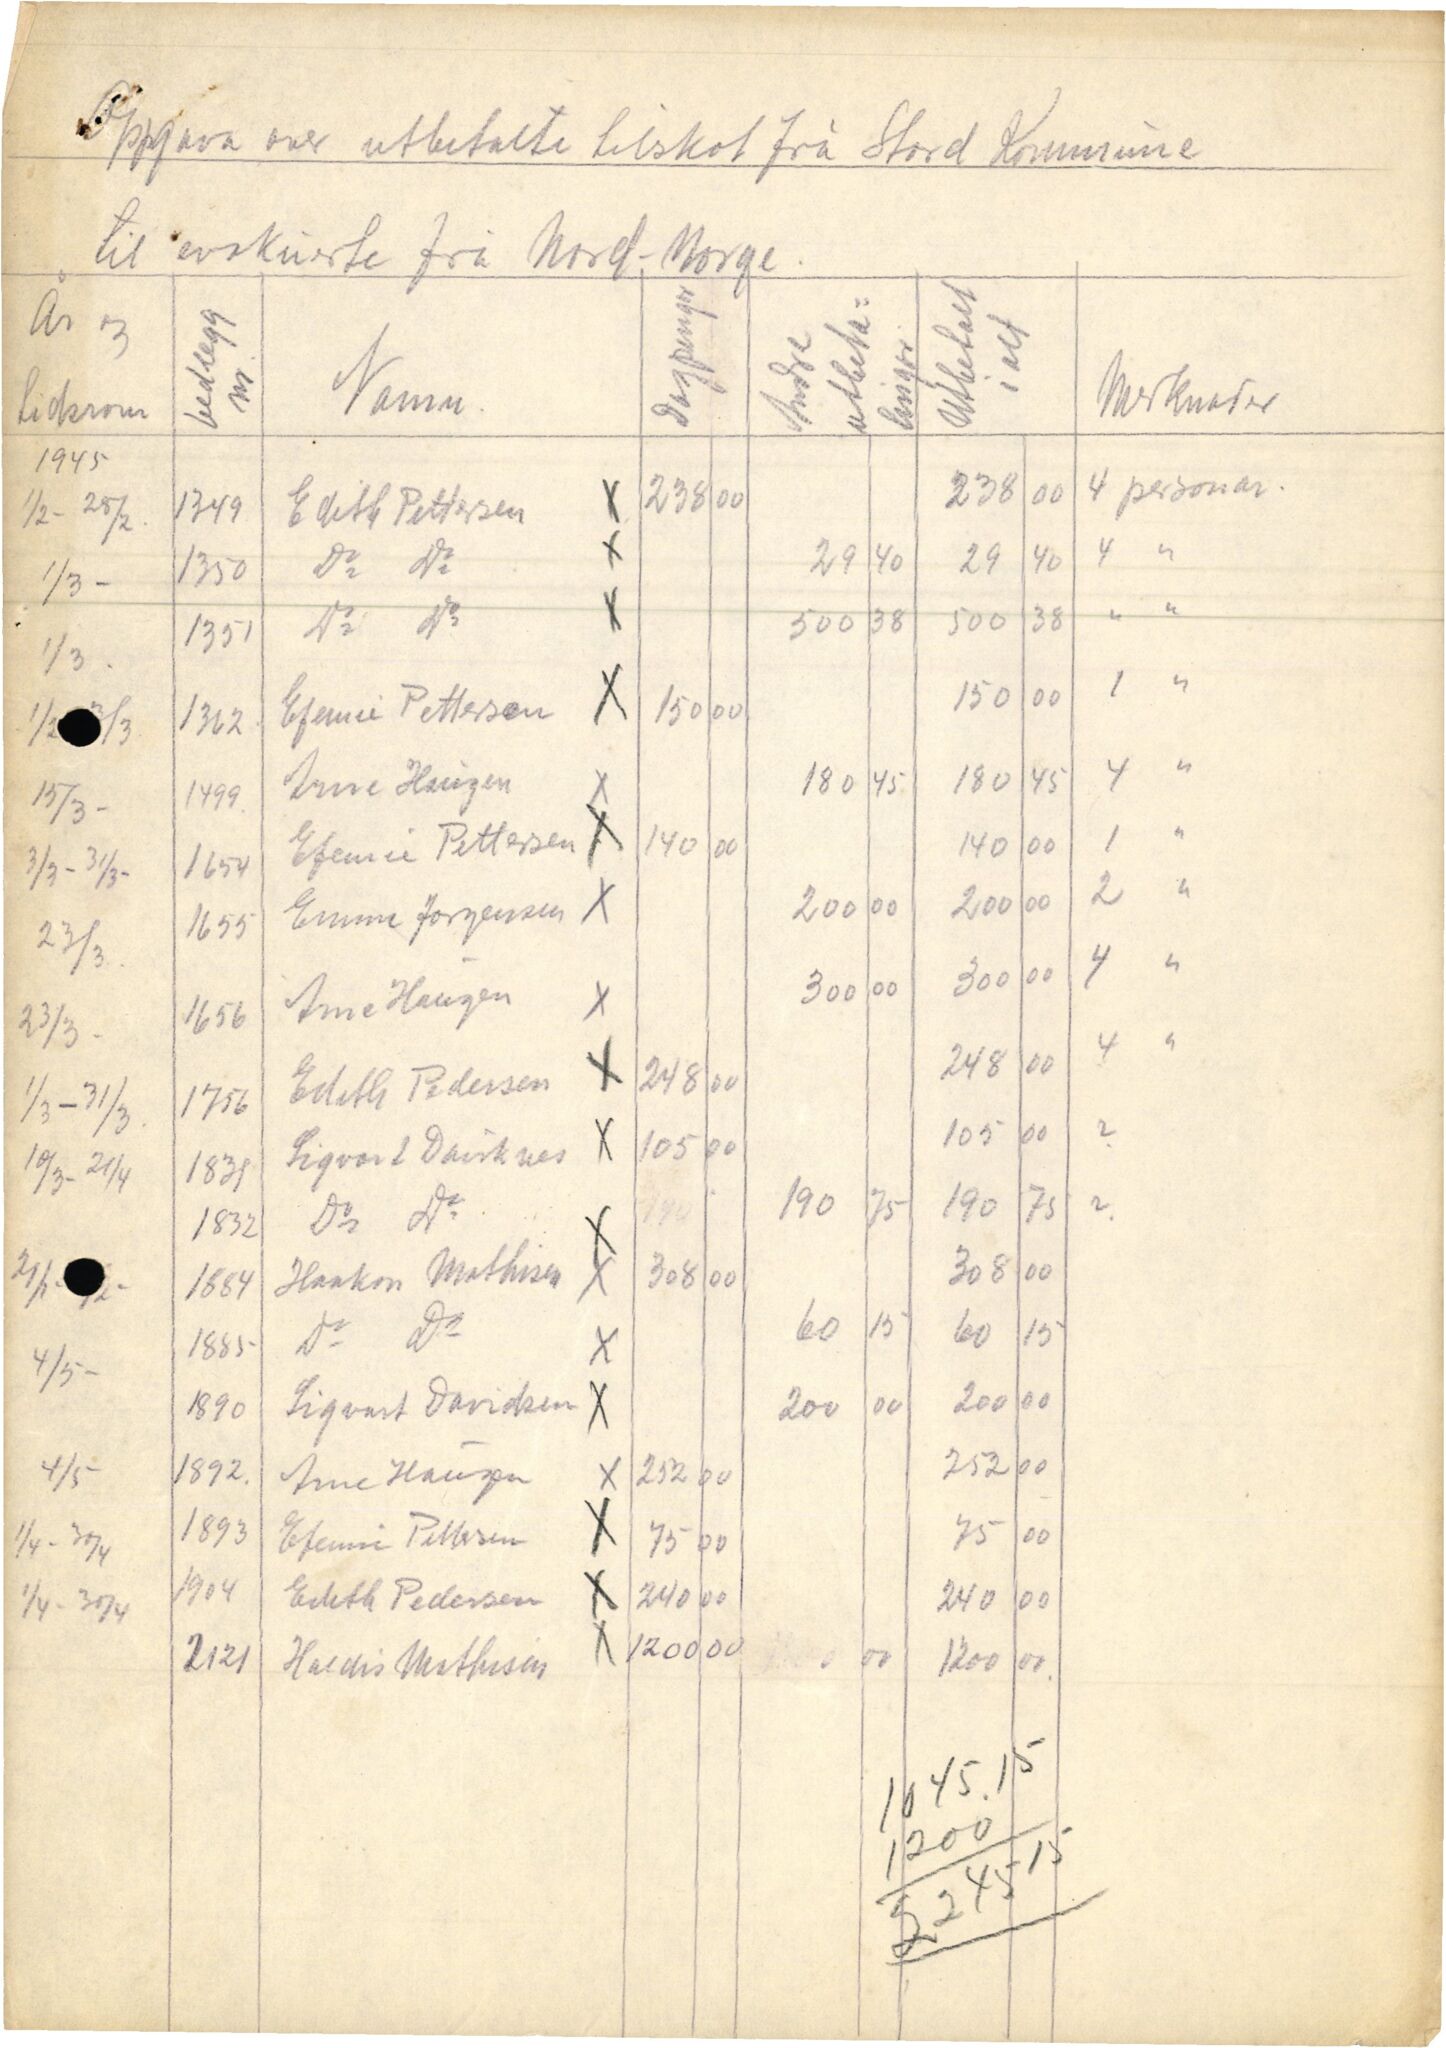 Oppgava over utbetalte tilskot frå Stord Kommune
til evakuerte frå Nord-Norge.
År og tidsrom | bedlegg nr. | Namn. | Dagpenger | Andre utbeta=linger | Utbetalt i alt | Merknader
1945
1/2 - 28/2. 1349 Edith Pettersen X 238 00 238 00 4 personar.
1/3 - 1350 Do Do X 29 40 29 40 4 "
1/3. 1351 Do Do X 500 38 500 38 " "
1/2 3/3 1362. Efemie Pettersen X 150 00 150 00 1 "
15/3 - 1499. Arne Haugen X 180 45 180 45 4 "
3/3 - 31/3 - 1654 Efemie Pettersen X 140 00 140 00 1 "
23/3. 1655 Emma Jorgensen X 200 00 200 00 2 "
23/3 - 1656 Arne Haugen X 300 00 300 00 4 "
1/3 - 31/3. 1756 Edith Pedersen X 248 00 248 00 4 "
10/3 - 21/4 1831 Sigvart X 105 00 105 00 2.
1832 Do Do X 190 75 190 75 2.
1884 Haakon Mathisen X 308 00 308 00
4/5 - 1885 Do Do X 60 15 60 15
1890 Sigvart Davidsen X 200 00 200 00
4/5 1892. Arne Haugen X 252 00 252 00
1/4 - 30/4 1893 Efemie Pettersen X 75 00 75 00
1/4 - 30/4 1904 Edith Pedersen X 240 00 240 00
2121 Haldis Mathisen X 1200 00 00 1200 00.
1045.15
1200
2245 15